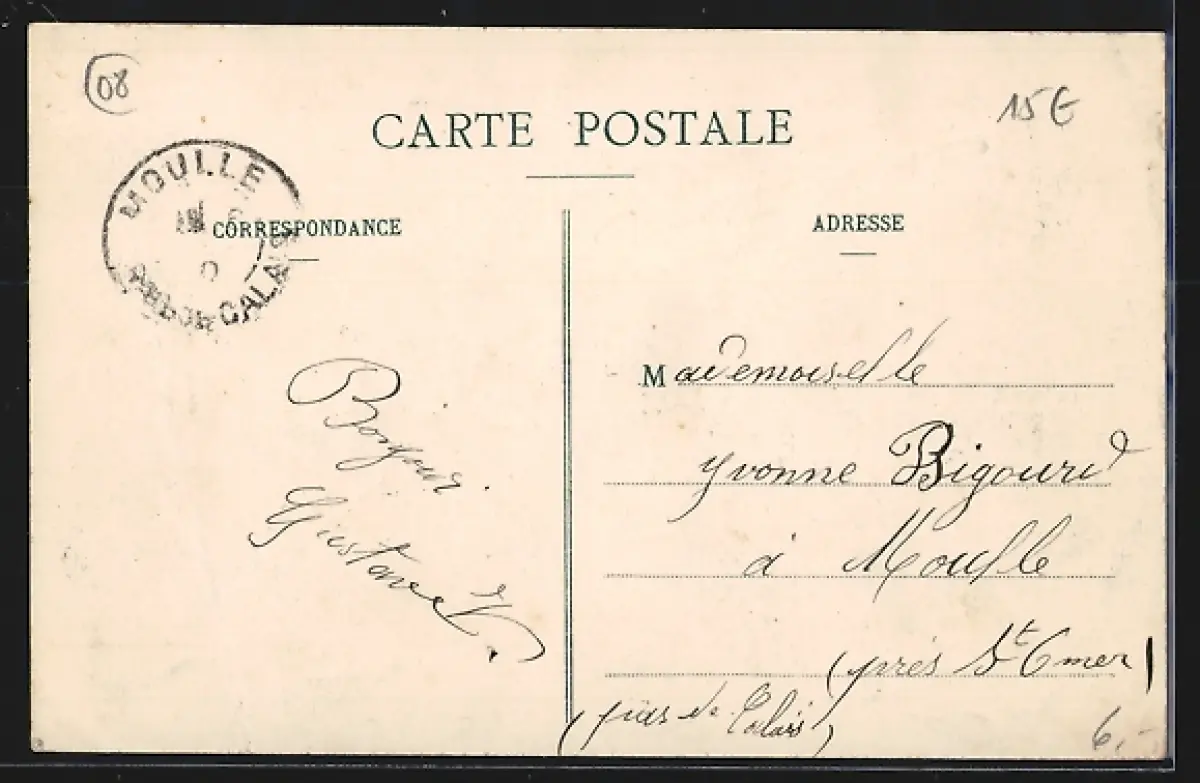 08
15€
CARTE POSTALE
MOULLE
CALAIS
CORRESPONDANCE
ADRESSE
Bonjour
Gustave
Mademoiselle
Yvonne Bigourd
à Moulle
(près St Omer)
(pas de Calais)
6.-